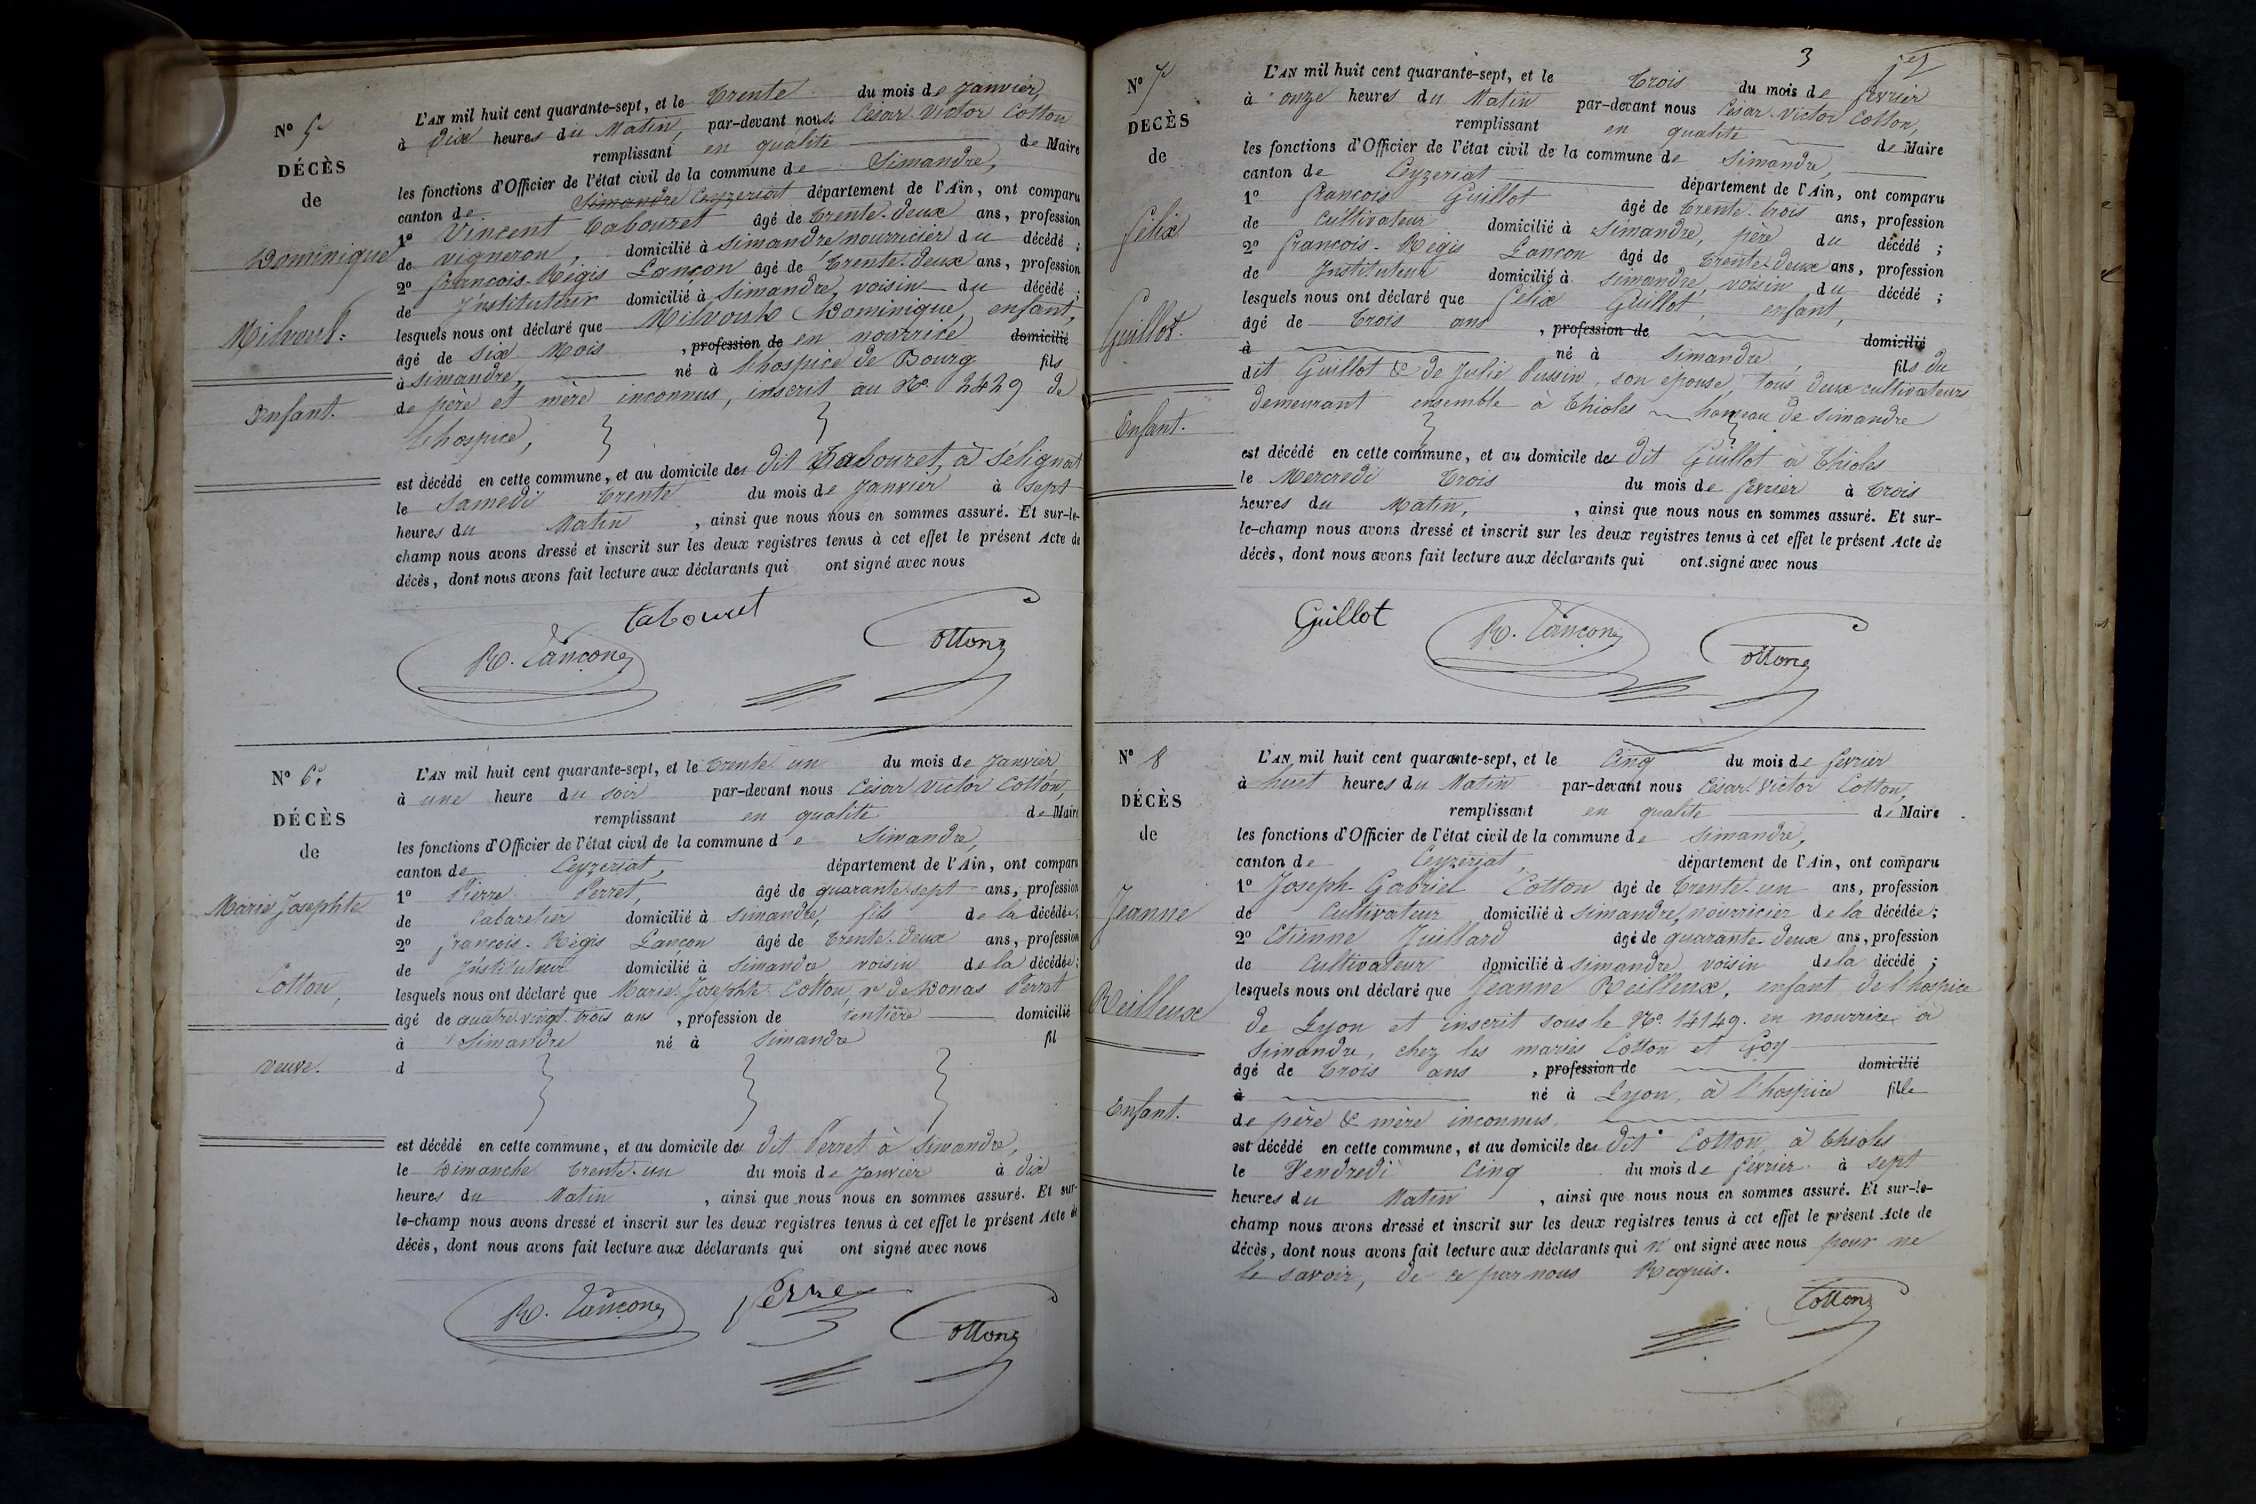 N° 5e
DÉCÈS
de
Dominique
Milvouh.
Enfant.
L'AN mil huit cent quarante-sept, et le trente du mois de Janvier,
à Dix heures du Matin, par-devant nous César Victor Cotton
remplissant en qualité de Maire
les fonctions d'Officier de l'état civil de la commune de Simandre,
canton de Simandre Ceyzeriat département de l'Ain, ont comparu
1° Vincent Tabouret âgé de trente-deux ans, profession
de vigneron, domicilié à Simandre nourricier du décédé ;
2° françois-Régis Lançon âgé de trente-deux ans, profession
de Instituteur domicilié à Simandre, voisin du décédé ;
lesquels nous ont déclaré que Milvouh Dominique, enfant,
âgé de six Mois, profession de en nourrice domicilié
à Simandre, né à lhospice de Bourg fils
de père et mère inconnus, inscrit au N° 2429 de
lhospice,
est décédé en cette commune, et au domicile des dit Tabouret, à Sélignat
le Samedi trente du mois de Janvier à Sept
heures du Matin, ainsi que nous nous en sommes assuré. Et sur-le-
champ nous avons dressé et inscrit sur les deux registres tenus à cet effet le présent Acte de
décès, dont nous avons fait lecture aux déclarants qui ont signé avec nous
tabouret
R. Lançon
Cotton
N° 6e
DÉCÈS
de
Marie Josephte
Cotton,
veuve.
L'AN mil huit cent quarante-sept, et le trente un du mois de Janvier
à une heure du soir par-devant nous César Victor Cotton,
remplissant en qualité de Maire
les fonctions d'Officier de l'état civil de la commune de Simandre,
canton de Ceyzeriat, département de l'Ain, ont comparu
1° Pierre Perret, âgé de quarante-sept ans, profession
de Cabaretier domicilié à Simandre, fils de la décédée ;
2° françois-Régis Lançon âgé de trente-deux ans, profession
de Instituteur domicilié à Simandre voisin de la décédée ;
lesquels nous ont déclaré que Marie-Josephte Cotton, ve de Donas Perret
âgé de quatre-vingt-trois ans, profession de rentière domicilié
à Simandre né à Simandre fil
d
est décédé en cette commune, et au domicile des dit Perret à Simandre,
le Dimanche trente-un du mois de Janvier à dix
heures du Matin, ainsi que nous nous en sommes assuré. Et sur-
le-champ nous avons dressé et inscrit sur les deux registres tenus à cet effet le présent Acte de
décès, dont nous avons fait lecture aux déclarants qui ont signé avec nous
R. Lançon
Perret
Cotton
3
N° 7e
DECÈS
de
Félix
Guillot.
Enfant.
L'AN mil huit cent quarante-sept, et le trois du mois de février
à onze heures du Matin par-devant nous César-Victor Cotton,
remplissant en qualité de Maire
les fonctions d'Officier de l'état civil de la commune de Simandre,
canton de Ceyzeriat département de l'Ain, ont comparu
1° françois Guillot âgé de trente-trois ans, profession
de Cultivateur domicilié à Simandre, père du décédé ;
2° françois-Régis Lançon âgé de trente-deux ans, profession
de Instituteur domicilié à Simandre, voisin du décédé ;
lesquels nous ont déclaré que Félix Guillot, enfant,
âgé de trois ans, profession de domicilié
à né à Simandre, fils du
dit Guillot & de Julie Pussin, son épouse, tous deux cultivateurs
demeurant ensemble à thioles hameau de Simandre
est décédé en cette commune, et au domicile des dit Guillot à thioles
le Mercredi trois du mois de février à trois
heures du Matin, ainsi que nous nous en sommes assuré. Et sur-
le-champ nous avons dressé et inscrit sur les deux registres tenus à cet effet le présent Acte de
décès, dont nous avons fait lecture aux déclarants qui ont signé avec nous
Guillot
R. Lançon
Cotton
N° 8
DÉCÈS
de
Jeanne
Reilleux
Enfant.
L'AN mil huit cent quarante-sept, et le Cinq du mois de février
à huit heures du Matin par-devant nous César-Victor Cotton,
remplissant en qualité de Maire
les fonctions d'Officier de l'état civil de la commune de Simandre,
canton de Ceyzériat, département de l'Ain, ont comparu
1° Joseph-Gabriel Cotton âgé de trente-un ans, profession
de Cultivateur domicilié à Simandre, nourricier de la décédée ;
2° Etienne Juillard âgé de quarante-deux ans, profession
de Cultivateur domicilié à Simandre voisin de la décédé ;
lesquels nous ont déclaré que Jeanne Reilleux, enfant de l'hospice
de Lyon et inscrit sous le N° 14149. en nourrice à
Simandre, chez les mariés Cotton et Goy
âgé de trois ans, profession de domicilié
à né à Lyon, à l'hospice fille
de père & mère inconnus.
est décédé en cette commune, et au domicile des dit Cotton, à thioles
le Vendredi Cinq du mois de février à sept
heures du Matin, ainsi que nous nous en sommes assuré. Et sur-le-
champ nous avons dressé et inscrit sur les deux registres tenus à cet effet le présent Acte de
décès, dont nous avons fait lecture aux déclarants qui n'ont signé avec nous pour ne
le savoir, de ce par nous Requis.
Cotton